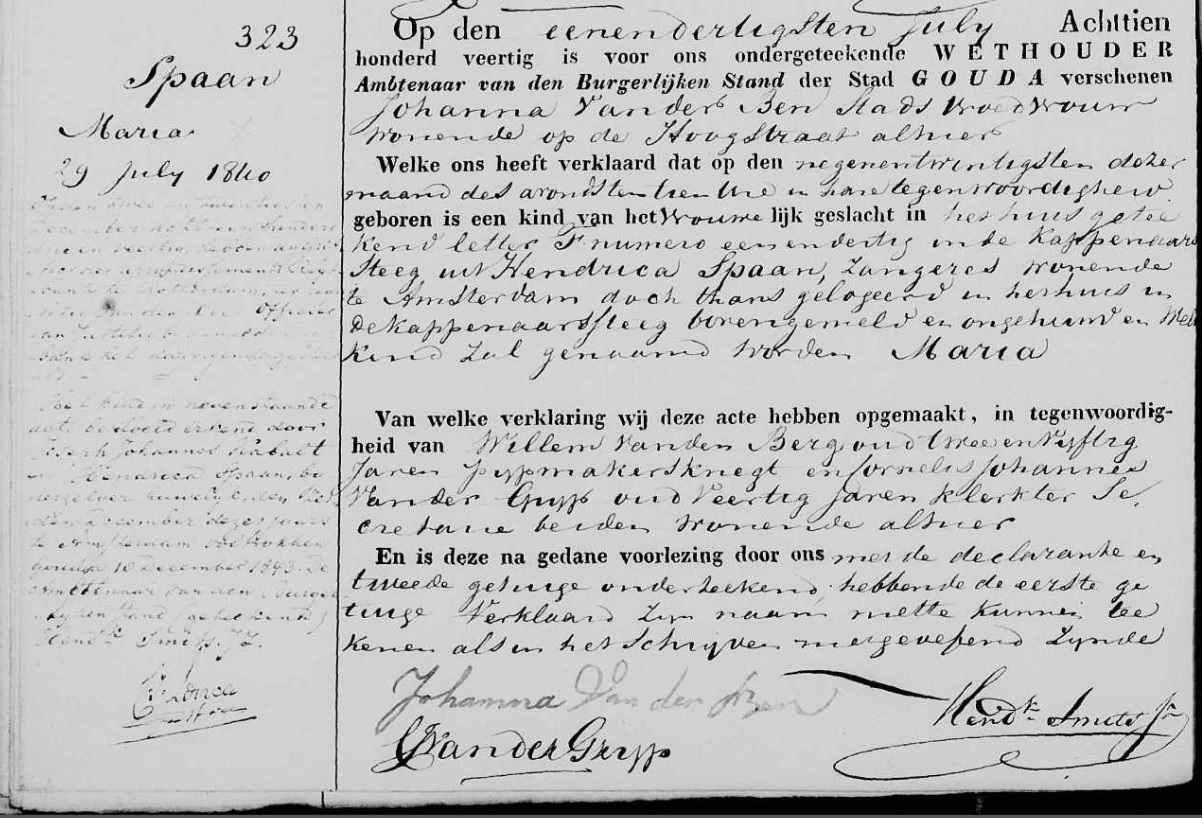 323
Spaan
Maria
29 July 1840
December
Officier
van Justitie
Het kind in nevenstaande
acte bedoeld is erkend door
Joseph Johannes
en Hendrica Spaan, bij
derzelver huwelijk, op den
December dezes jaars
te Amsterdam voltrokken
gouda 10 December 1843. De
ambtenaar van den Burger
lijken Stand (geteekend)
Hendk Smits. Jz.
Op den eenendertigsten July Achttien
honderd veertig is voor ons ondergeteekende WETHOUDER
Ambtenaar van den Burgerlijken Stand der Stad GOUDA verschenen
Johanna Vander Ben Stads Vroedvrouw
wonende op de Hoogstraat alhier
Welke ons heeft verklaard dat op den negenentwintigsten dezer
maand des avonds ten tien Ure in hare tegenwoordigheid
geboren is een kind van het Vrouwelijk geslacht in het huis getee
kend letter F numero eenendertig in de Kappenaars
Steeg uit Hendrica Spaan, Zangeres wonende
te Amsterdam doch thans gelogeerd in het huis in
de Kappenaardsteeg bovengemeld en ongehuwd en Welk
kind Zal genaamd worden Maria
Van welke verklaring wij deze acte hebben opgemaakt, in tegenwoordig-
heid van Willem Vanden Berg oud twee en Vyftig
Jaren pypmakersknegt en Cornelis Johannes
Vander Gryp oud Veertig Jaren klerk ter Se
cretarie beiden wonende alhier
En is deze na gedane voorlezing door ons met de declarante en
tweede getuige onderteekend, hebbende de eerste ge
tuige Verklaard Zyn naam niet te kunnen tee
kenen als in het Schrijven ongeoefend Zynde
Johanna Van der Ben
Hendk Smits Jz
CJVander Gryp